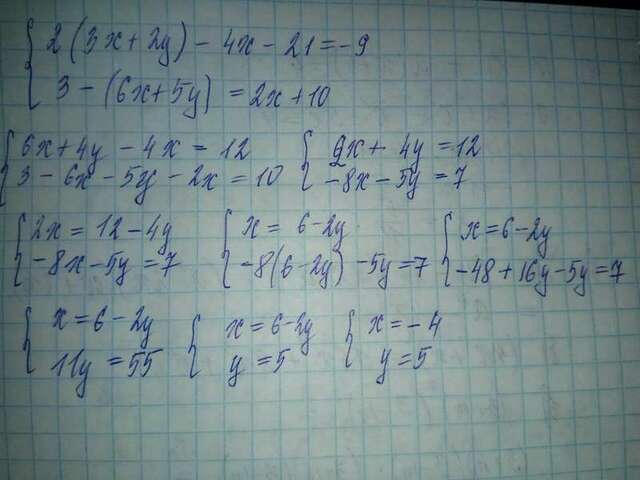 2(3x+2y)-4x-21=-9
3-(6x+5y)=2x+10
6x+4y-4x=12
3-6x-5y-2x=10
2x+4y=12
-8x-5y=7
2x=12-4y
-8x-5y=7
x=6-2y
-8(6-2y)-5y=7
x=6-2y
-48+16y-5y=7
x=6-2y
11y=55
x=6-2y
y=5
x=-4
y=5